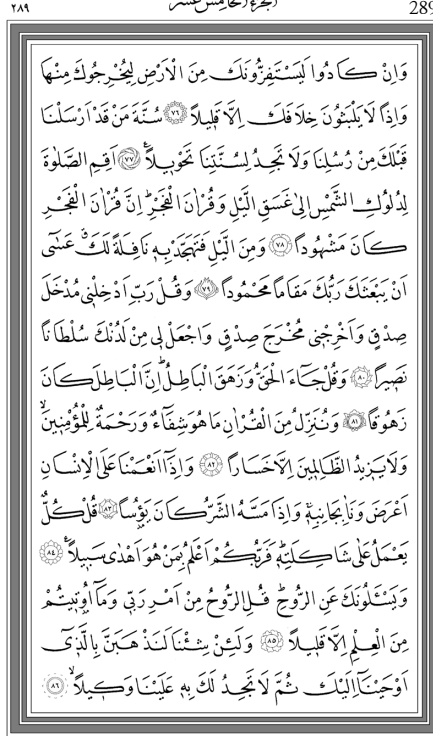 ٢٨٩ الجزء الخامس عشر 289
وَاِنْ كَادُوا لَيَسْتَفِزُّونَكَ مِنَ الْاَرْضِ لِيُخْرِجُوكَ مِنْهَا
وَاِذًا لَا يَلْبَثُونَ خِلَافَكَ اِلَّا قَلٖيلًا ﴿٧٦﴾ سُنَّةَ مَنْ قَدْ اَرْسَلْنَا
قَبْلَكَ مِنْ رُسُلِنَا وَلَا تَجِدُ لِسُنَّتِنَا تَحْوٖيلًا ﴿٧٧﴾ اَقِمِ الصَّلٰوةَ
لِدُلُوكِ الشَّمْسِ اِلٰى غَسَقِ الَّيْلِ وَقُرْاٰنَ الْفَجْرِ اِنَّ قُرْاٰنَ الْفَجْرِ
كَانَ مَشْهُودًا ﴿٧٨﴾ وَمِنَ الَّيْلِ فَتَهَجَّدْ بِهٖ نَافِلَةً لَكَ عَسٰى
اَنْ يَبْعَثَكَ رَبُّكَ مَقَامًا مَحْمُودًا ﴿٧٩﴾ وَقُلْ رَبِّ اَدْخِلْنٖى مُدْخَلَ
صِدْقٍ وَاَخْرِجْنٖى مُخْرَجَ صِدْقٍ وَاجْعَلْ لٖى مِنْ لَدُنْكَ سُلْطَانًا
نَصٖيرًا ﴿٨٠﴾ وَقُلْ جَاءَ الْحَقُّ وَزَهَقَ الْبَاطِلُ اِنَّ الْبَاطِلَ كَانَ
زَهُوقًا ﴿٨١﴾ وَنُنَزِّلُ مِنَ الْقُرْاٰنِ مَا هُوَ شِفَاءٌ وَرَحْمَةٌ لِلْمُؤْمِنٖينَ
وَلَا يَزٖيدُ الظَّالِمٖينَ اِلَّا خَسَارًا ﴿٨٢﴾ وَاِذَا اَنْعَمْنَا عَلَى الْاِنْسَانِ
اَعْرَضَ وَنَاٰ بِجَانِبِهٖ وَاِذَا مَسَّهُ الشَّرُّ كَانَ يَؤُسًا ﴿٨٣﴾ قُلْ كُلٌّ
يَعْمَلُ عَلٰى شَاكِلَتِهٖ فَرَبُّكُمْ اَعْلَمُ بِمَنْ هُوَ اَهْدٰى سَبٖيلًا ﴿٨٤﴾
وَيَسْـَٔلُونَكَ عَنِ الرُّوحِ قُلِ الرُّوحُ مِنْ اَمْرِ رَبّٖى وَمَا اُوتٖيتُمْ
مِنَ الْعِلْمِ اِلَّا قَلٖيلًا ﴿٨٥﴾ وَلَئِنْ شِئْنَا لَنَذْهَبَنَّ بِالَّذٖى
اَوْحَيْنَا اِلَيْكَ ثُمَّ لَا تَجِدُ لَكَ بِهٖ عَلَيْنَا وَكٖيلًا ﴿٨٦﴾